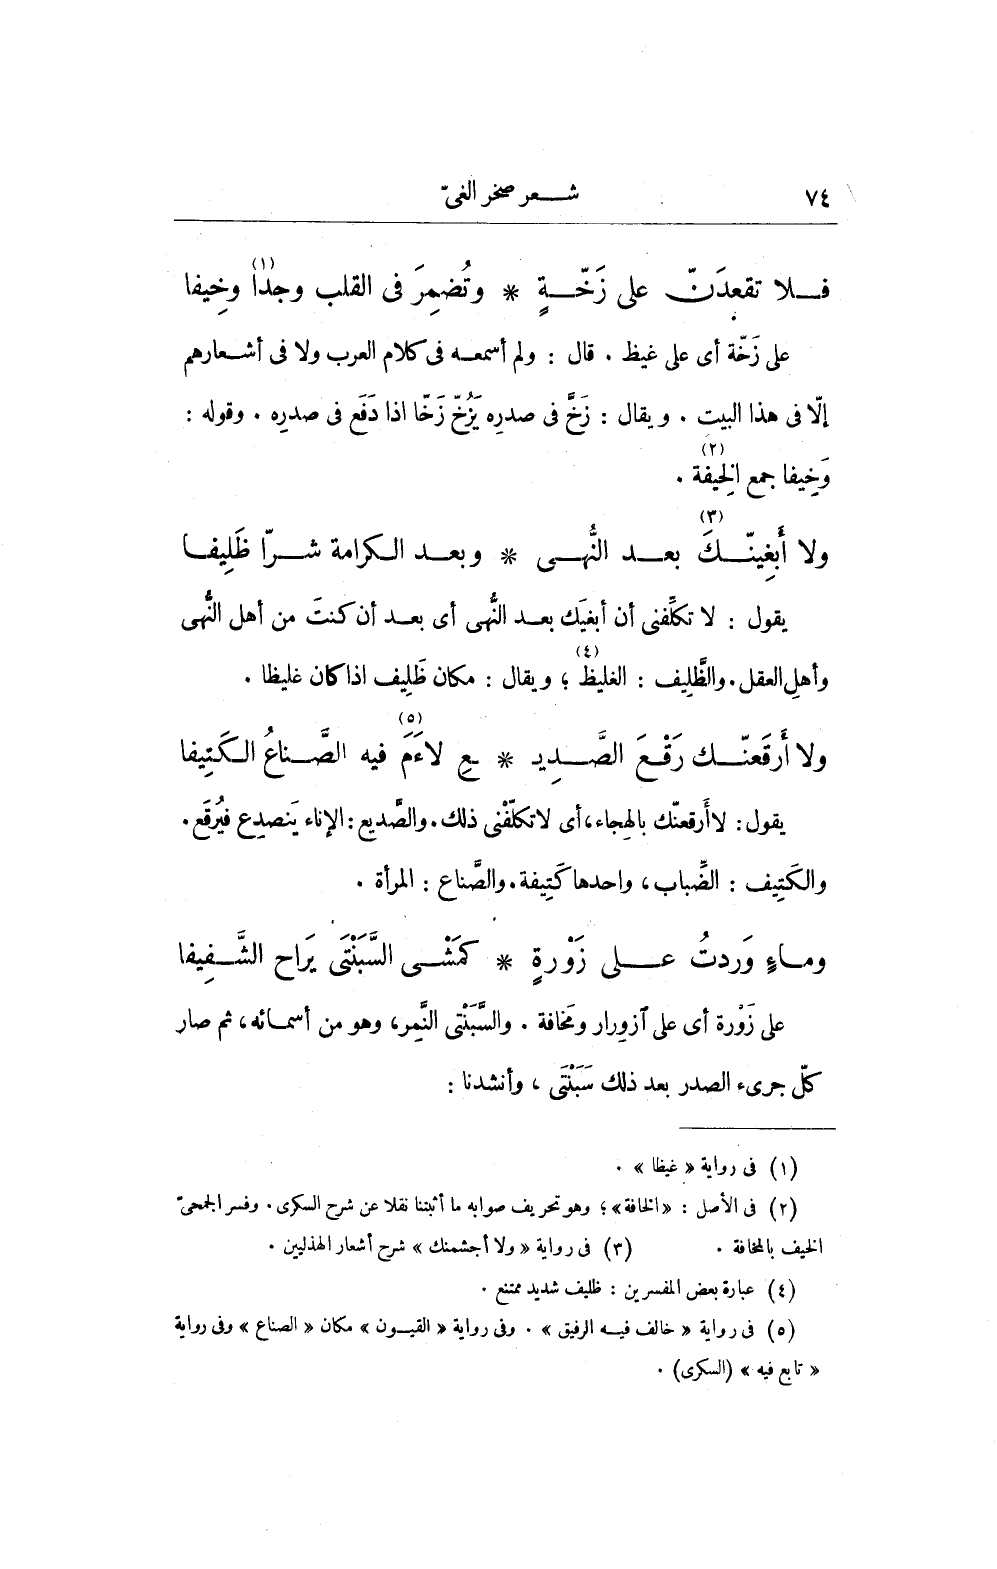 ٧٤ شعر صخر الغىّ
فلا تقعدَنّ على زَخّةٍ * وتُضمِرَ فى القلب وجْدًا (١) وخِيفا
على زَخّة أى على غيظ . قال : ولم أسمعه فى كلام العرب ولا فى أشعارهم
إلّا فى هذا البيت . ويقال : زَخَّ فى صدره يَزُخّ زَخّا اذا دَفَع فى صدرِه . وقوله :
وَخِيفا جمع الخِيفة (٢) .
ولا أَبغِينّكَ (٣) بعد النُّهى * وبعد الكرامة شرّا ظَلِيفا
يقول : لا تكلِّفنى أن أبغيَك بعد النُّهى أى بعد أن كنتَ من أهل النُّهى
وأهلِ العقل . والظَّلِيف : الغليظ (٤) ؛ ويقال : مكان ظَلِيف اذا كان غليظا .
ولا أَرقَعنّك رَقْعَ الصَّديـ * ـعِ لاءَمَ (٥) فيه الصَّناعُ الكَتِيفا
يقول : لا أَرقعنّك بالهِجاء، أى لا تكلّفْنى ذلك . والصَّديع : الإناء يَنصدِع فيُرقَع .
والكَتِيف : الضِّباب، واحدها كَتِيفة . والصَّناع : المرأة .
وماءٍ وَردتُ على زَوْرةٍ * كمَشْى السَّبَنْتَى يَراح الشَّفِيفا
على زَوْرة أى على آزوِرار ومَخافة . والسَّبَنْتَى النَّمِر، وهو من أسمائه، ثم صار
كلّ جرىء الصدر بعد ذلك سَبَنْتَى ، وأنشدنا :
(١) فى رواية « غيظا » .
(٢) فى الأصل : « الخافة » ؛ وهو تحريف صوابه ما أثبتنا نقلا عن شرح السكرى . وفسر الجمحىّ
الخيف بالمخافة . (٣) فى رواية « ولا أجشمنك » شرح أشعار الهذليين .
(٤) عبارة بعض المفسرين : ظليف شديد ممتنع .
(٥) فى رواية « خالف فيه الرفيق » . وفى رواية « القيون » مكان « الصناع » وفى رواية
« تابع فيه » (السكرى) .